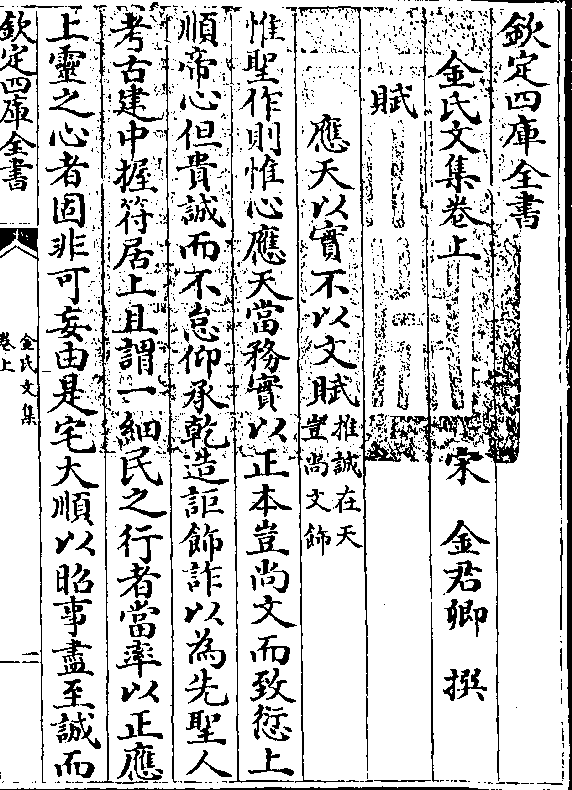 欽定四庫全書
金氏文集卷上
宋 金君卿 撰
賦
應天以實不以文賦推誠在天
豈尚文飾
惟聖作則惟心應天當務實以正本豈尚文而致愆上
順帝心但貴誠而不怠仰承乾造詎飾詐以為先聖人
考古建中握符居上且謂一細民之行者當率以正應
上靈之心者固非可妄由是宅大順以昭事盡至誠而
欽定四庫全書
金氏文集
卷上
一